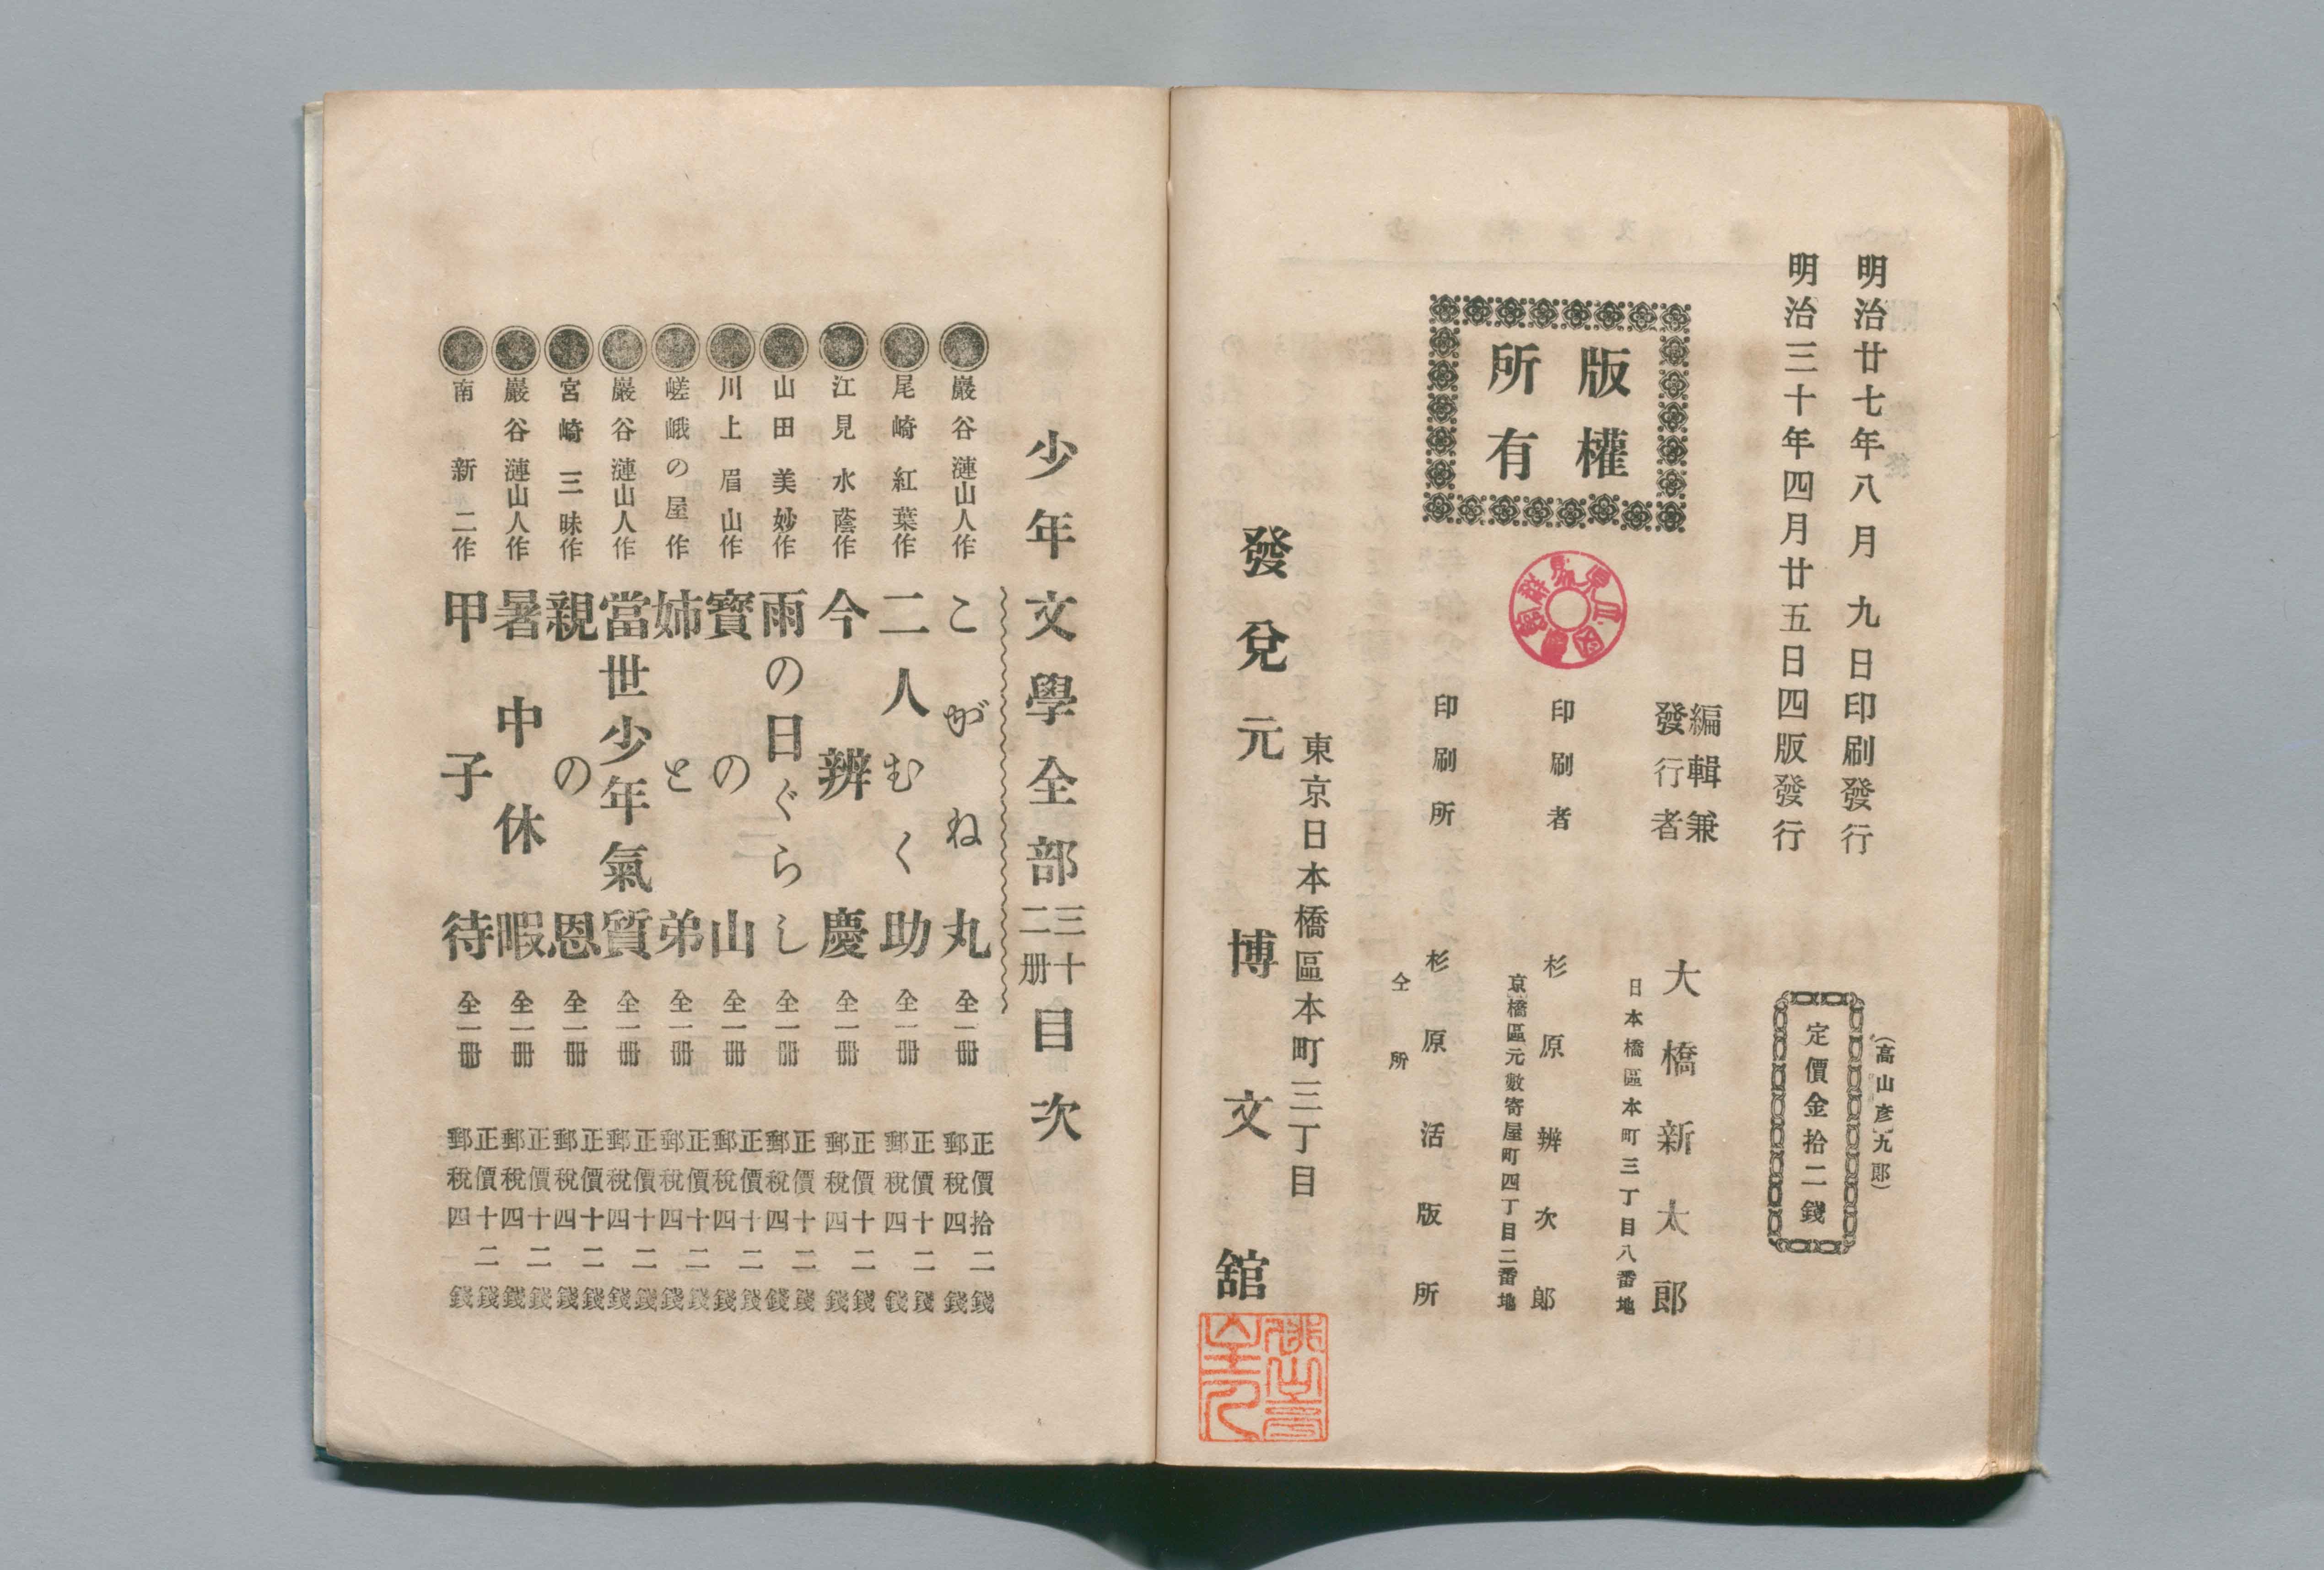 明治廿七年八月九日印刷發行
明治三十年四月廿五日四版發行
(高山彦九郎)
定價金拾二錢
版權
所有
編輯兼
發行者
大橋新太郎
日本橋區本町三丁目八番地
印刷者
杉原辨次郎
京橋區元數寄屋町四丁目二番地
印刷所
杉原活版所
仝所
東京日本橋區本町三丁目
發兌元 博文舘
少年文學全部三十二册目次
巖谷漣山人作 こがね丸 全一册 正價拾二錢 郵稅四錢
尾崎紅葉作 二人むく助 全一册 正價十二錢 郵稅四錢
江見水蔭作 今辨慶 全一册 正價十二錢 郵稅四錢
山田美妙作 雨の日ぐらし 全一册 正價十二錢 郵稅四錢
川上眉山作 寶の山 全一册 正價十二錢 郵稅四錢
嵯峨の屋作 姉と弟 全一册 正價十二錢 郵稅四錢
巖谷漣山人作 當世少年氣質 全一册 正價十二錢 郵稅四錢
宮崎三昧作 親の恩 全一册 正價十二錢 郵稅四錢
巖谷漣山人作 暑中休暇 全一册 正價十二錢 郵稅四錢
南新二作 甲子待 全一册 正價十二錢 郵稅四錢